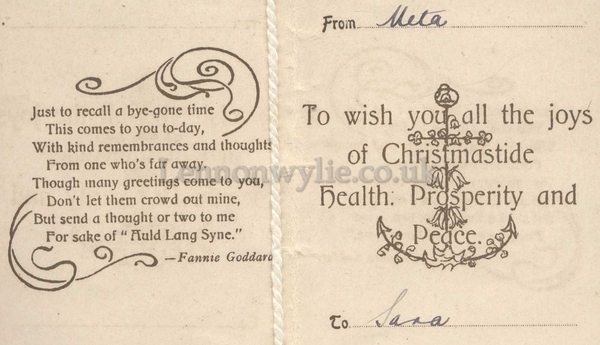 Just to recall a bye-gone time
This comes to you to-day,
With kind remembrances and thoughts
From one who's far away.
Though many greetings come to you,
Don't let them crowd out mine,
But send a thought or two to me
For sake of "Auld Lang Syne."
—Fannie Goddard
From Meta
To wish you all the joys
of Christmastide
Health: Prosperity and
Peace.
To Sara
Lennonwylie.co.uk